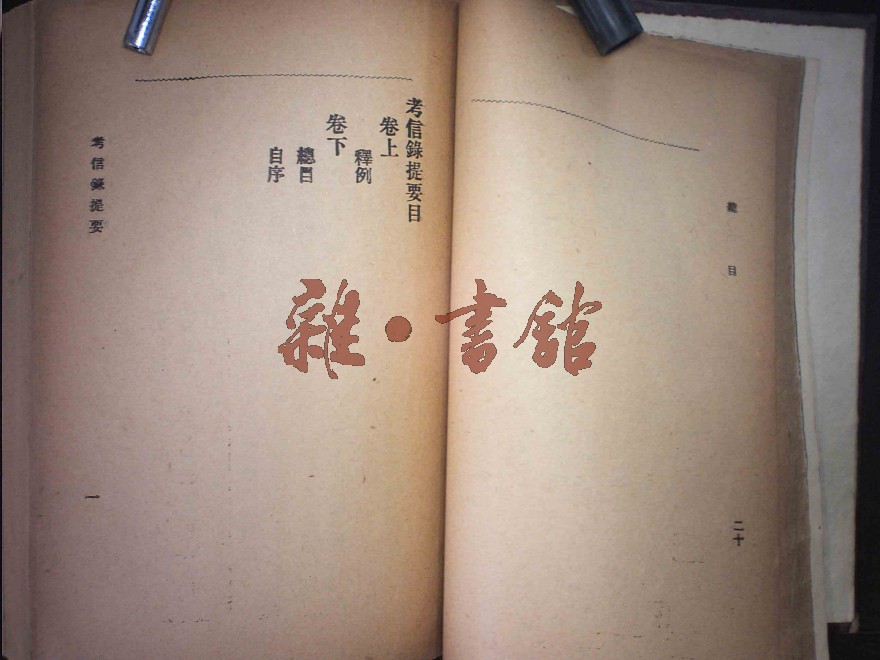 總目
二十
考信錄提要目
卷上
釋例
卷下
總目
自序
考信錄提要
一
雜•書館